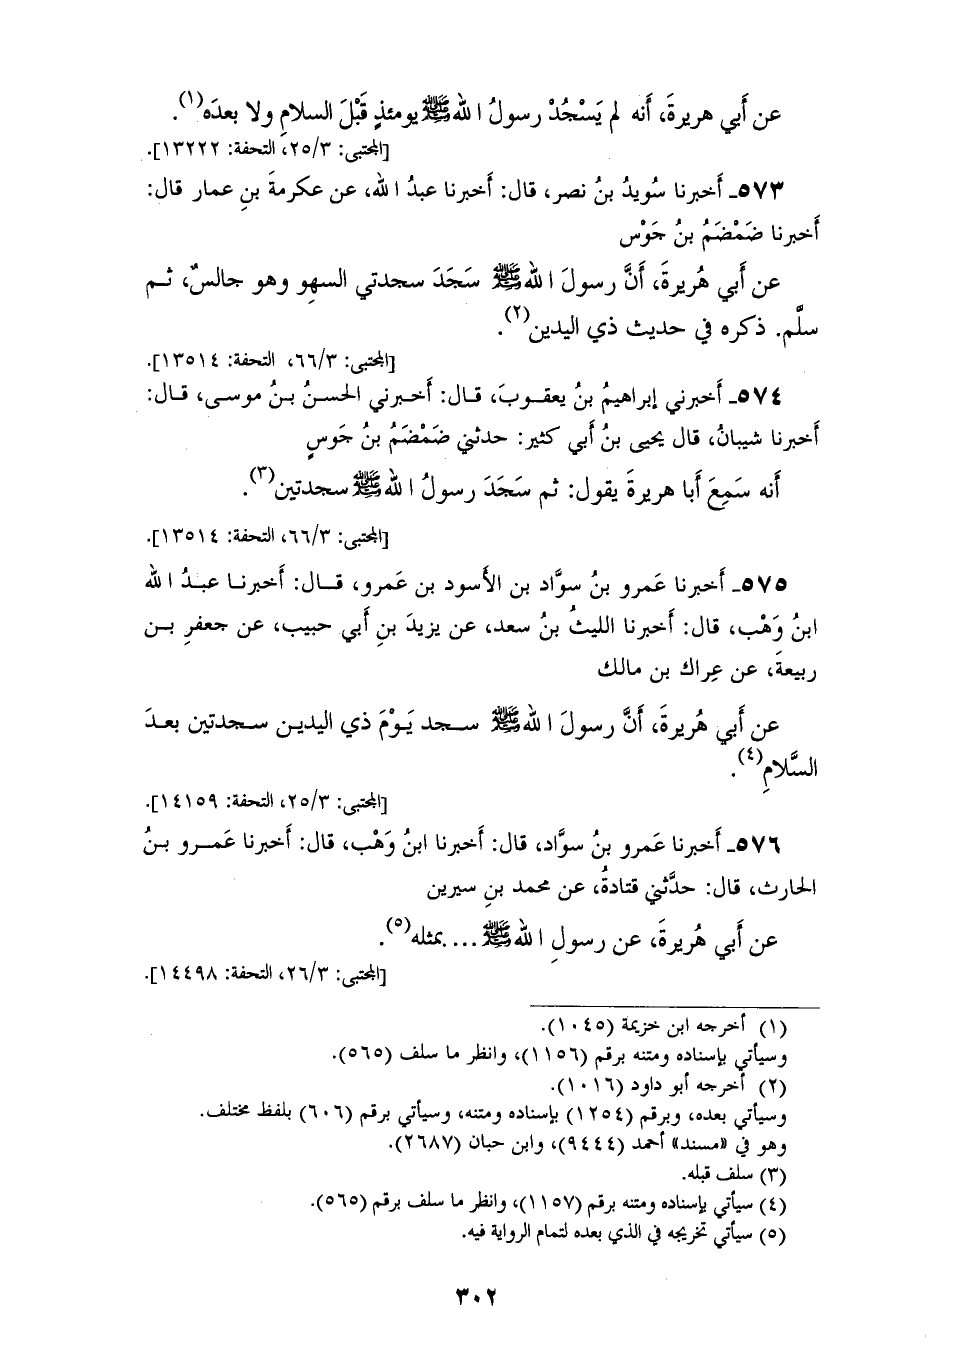 عن أَبي هريرةَ، أَنه لم يَسْجُدْ رسولُ الله ﷺ يومئذٍ قَبْلَ السلامِ ولا بعدَه(١).
[المجتبى: ٢٥/٣، التحفة: ١٣٢٢٢].
٥٧٣ـ أَخبرنا سُويدُ بنُ نصر، قال: أَخبرنا عبدُ الله، عن عكرمةَ بنِ عمار قال:
أَخبرنا ضَمْضَمُ بنُ جَوْس
عن أَبي هُريرةَ، أَنَّ رسولَ الله ﷺ سَجَدَ سجدتي السهوِ وهو جالسٌ، ثم
سلَّم. ذكره في حديث ذي اليدين(٢).
[المجتبى: ٦٦/٣، التحفة: ١٣٥١٤].
٥٧٤ـ أَخبرني إبراهيمُ بنُ يعقوبَ، قال: أَخبرني الحسنُ بنُ موسى، قال:
أَخبرنا شيبانُ، قال يحيى بنُ أَبي كثير: حدثني ضَمْضَمُ بنُ جَوسٍ
أَنه سَمِعَ أَبا هريرةَ يقول: ثم سَجَدَ رسولُ الله ﷺ سجدتين(٣).
[المجتبى: ٦٦/٣، التحفة: ١٣٥١٤].
٥٧٥ـ أَخبرنا عَمرو بنُ سوَّاد بن الأَسود بن عَمرو، قال: أَخبرنا عبدُ الله
ابنُ وَهْب، قال: أَخبرنا الليثُ بنُ سعد، عن يزيدَ بنِ أَبي حبيب، عن جعفرِ بن
ربيعةَ، عن عِراك بن مالك
عن أَبي هُريرةَ، أَنَّ رسولَ الله ﷺ سجد يَوْمَ ذي اليدين سجدتين بعدَ
السَّلامِ(٤).
[المجتبى: ٢٥/٣، التحفة: ١٤١٥٩].
٥٧٦ـ أَخبرنا عَمرو بنُ سوَّاد، قال: أَخبرنا ابنُ وَهْب، قال: أَخبرنا عَمرو بنُ
الحارث، قال: حدَّثني قتادةُ، عن محمد بنِ سيرين
عن أَبي هُريرةَ، عن رسولِ الله ﷺ .... بمثله(٥).
[المجتبى: ٢٦/٣، التحفة: ١٤٤٩٨].
(١) أخرجه ابن خزيمة (١٠٤٥).
وسيأتي بإسناده ومتنه برقم (١١٥٦)، وانظر ما سلف (٥٦٥).
(٢) أخرجه أبو داود (١٠١٦).
وسيأتي بعده، وبرقم (١٢٥٤) بإسناده ومتنه، وسيأتي برقم (٦٠٦) بلفظ مختلف.
وهو في «مسند» أحمد (٩٤٤٤)، وابن حبان (٢٦٨٧).
(٣) سلف قبله.
(٤) سيأتي بإسناده ومتنه برقم (١١٥٧)، وانظر ما سلف برقم (٥٦٥).
(٥) سيأتي تخريجه في الذي بعده لتمام الرواية فيه.
٣٠٢